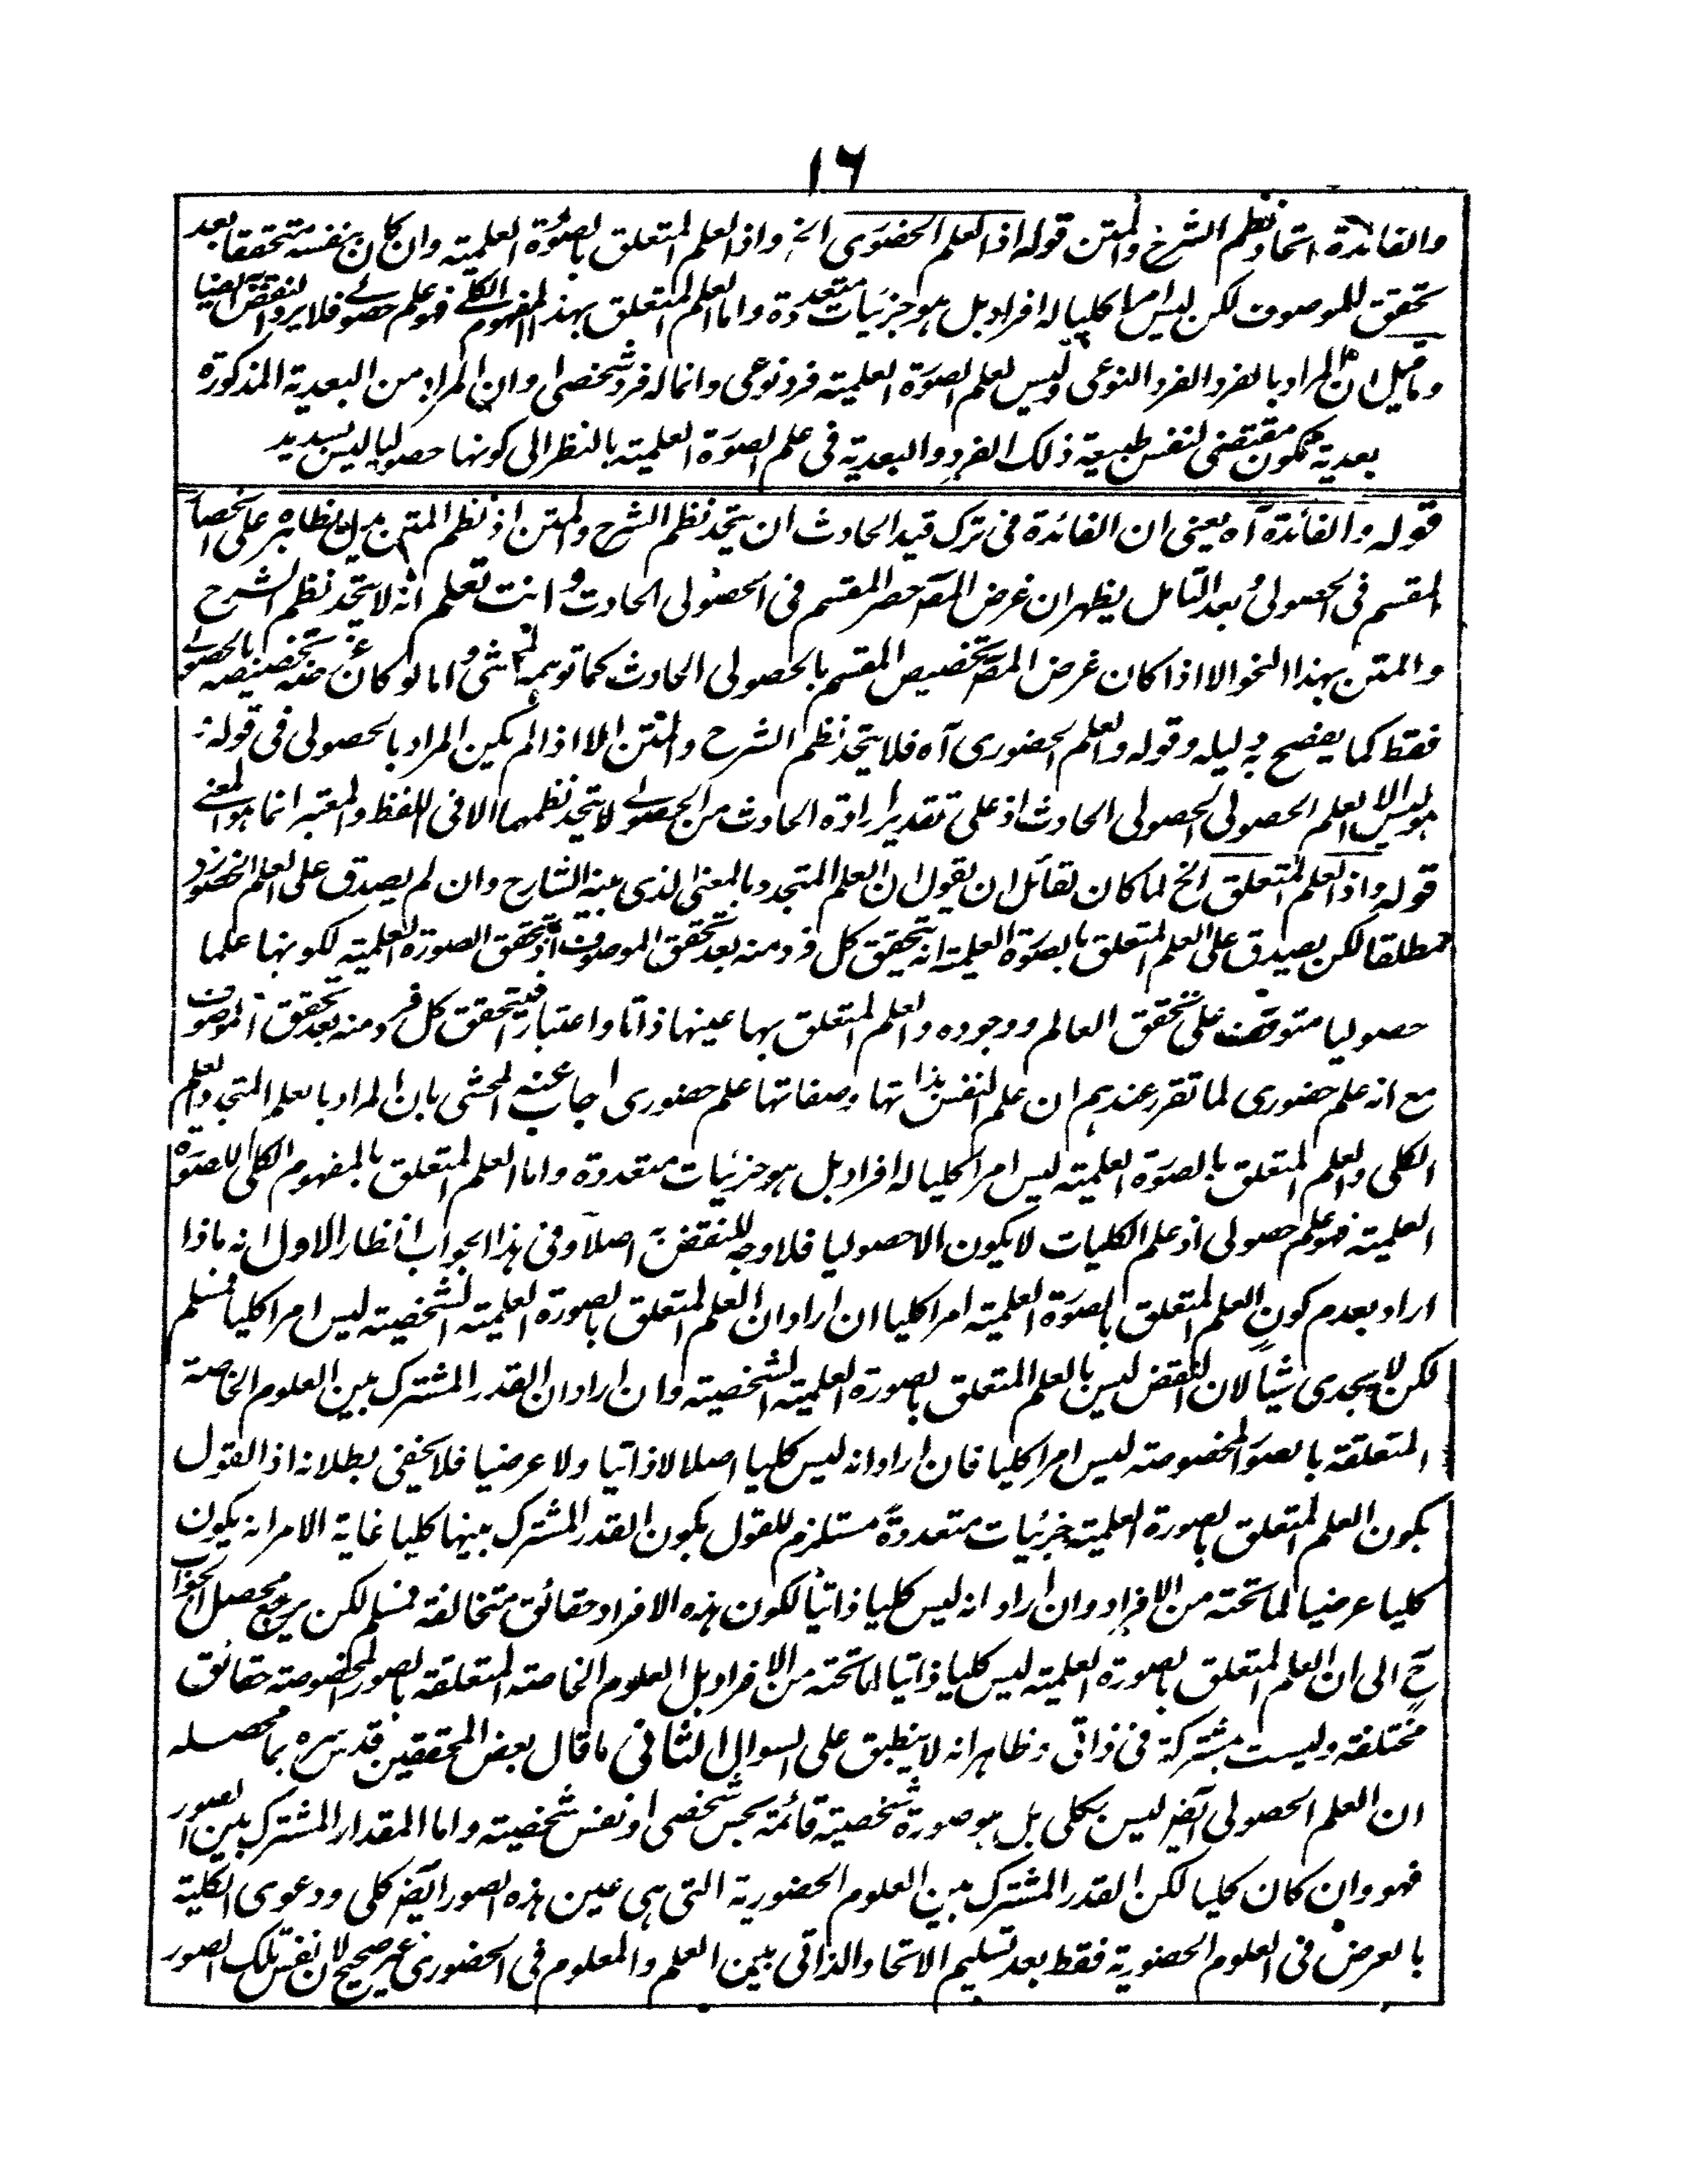 ١٦
والفائدة اتحاد نظم الشرح والمتن قوله اذ العلم الحضوري الخ واذا العلم المتعلق بالصورة العلمية وان كان بنفسه تحققا بعد
تحقق للموصوف لكن ليس امرا كليا له افراد بل هو جزئيات متعددة واما العلم المتعلق بهذا المفهوم الكلي فهو علم حصولي فلا يرد النقض ايضا
وما قيل ان المراد بالفرد الفرد النوعي وليس لعلم الصورة العلمية فرد نوعي وانما له فرد شخصي او ان المراد من البعدية المذكورة
بعدية تكون مقتضى لنفس طبيعة ذلك الفرد والبعدية في علم الصورة العلمية بالنظر الى كونها حصوليا ليس بسديد
قوله والفائدة آه يعني ان الفائدة في ترك قيد الحادث ان يتحد نظم الشرح والمتن اذ نظم المتن يدل بظاهره على اختصاص
المقسم في الحصولي وبعد التامل يظهر ان غرض المصـ حصر المقسم في الحصولي الحادث وانت تعلم انه لا يتحد نظم الشرح
والمتن بهذا النحو الا اذا كان غرض المصـ تخصيص المقسم بالحصولي الحادث كما توهمه المحشي واما لو كان غرضه تخصيصه بالحصولي
فقط كما يفصح به دليله وقوله والعلم الحضوري آه فلا يتحد نظم الشرح والمتن الا اذا لم يكن المراد بالحصولي في قوله
وليس الا العلم الحصولي الحصولي الحادث اذ على تقدير ارادة الحادث من الحصولي لا يتحد نظمهما الا في اللفظ والمعتبر انما هو المعنى
قوله واذ العلم المتعلق الخ لما كان لقائل ان يقول ان العلم المتجدد بالمعنى الذي بينه الشارح وان لم يصدق على العلم الحضوري
مطلقا لكن يصدق على العلم المتعلق بالصورة العلمية انه يتحقق كل فرد منه بعد تحقق الموصوف اذ تحقق الصورة العلمية لكونها علما
حصوليا متوقف على تحقق العالم ووجوده والعلم المتعلق بها عينها ذاتا واعتبارا فيتحقق كل فرد منه بعد تحقق الموصوف
مع انه علم حضوري لما تقرر عندهم ان علم النفس بذاتها وصفاتها علم حضوري اجاب عنه المحشي بان المراد بالعلم المتجدد العلم
الكلي والعلم المتعلق بالصورة العلمية ليس امرا كليا له افراد بل هو جزئيات متعددة واما العلم المتعلق بالمفهوم الكلي للصورة
العلمية فهو علم حصولي اذ علم الكليات لا يكون الا حصوليا فلا وجه للنقض به اصلا وفي هذا الجواب انظار الاول انه ماذا
اراد بعدم كون العلم المتعلق بالصورة العلمية امرا كليا ان اراد ان العلم المتعلق بالصورة العلمية الشخصية ليس امرا كليا فمسلم
لكن لا يجدي شيئا لان النقض ليس بالعلم المتعلق بالصورة العلمية الشخصية وان اراد ان القدر المشترك بين العلوم الخاصة
المتعلقة بالصور المخصوصة ليس امرا كليا فان اراد انه ليس كليا اصلا لا ذاتيا ولا عرضيا فلا يخفى بطلانه اذ القول
بكون العلم المتعلق بالصورة العلمية جزئيات متعددة مستلزم للقول بكون القدر المشترك بينها كليا غاية الامر انه يكون
كليا عرضيا لما تحته من الافراد وان اراد انه ليس كليا ذاتيا لكون هذه الافراد حقائق متخالفة فمسلم لكن يرجع محصل الجواب
ح الى ان العلم المتعلق بالصورة العلمية ليس كليا ذاتيا لما تحته من الافراد بل العلوم الخاصة المتعلقة بالصور المخصوصة حقائق
مختلفة وليست مشتركة في ذاتي وظاهر انه لا ينطبق على السوال الثاني ما قال بعض المحققين قدس سره بما محصله
ان العلم الحصولي ايضـ ليس بكلي بل هو صورة شخصية قائمة بجس شخصي او نفس شخصية واما المقدار المشترك بين الصور
فهو وان كان كليا لكن القدر المشترك بين العلوم الحضورية التي هي عين هذه الصور ايضـ كلي ودعوى الكلية
بالعرض في العلوم الحضورية فقط بعد تسليم الاتحاد الذاتي بين العلم والمعلوم في الحضوري غير صحيح لان نفس تلك الصور